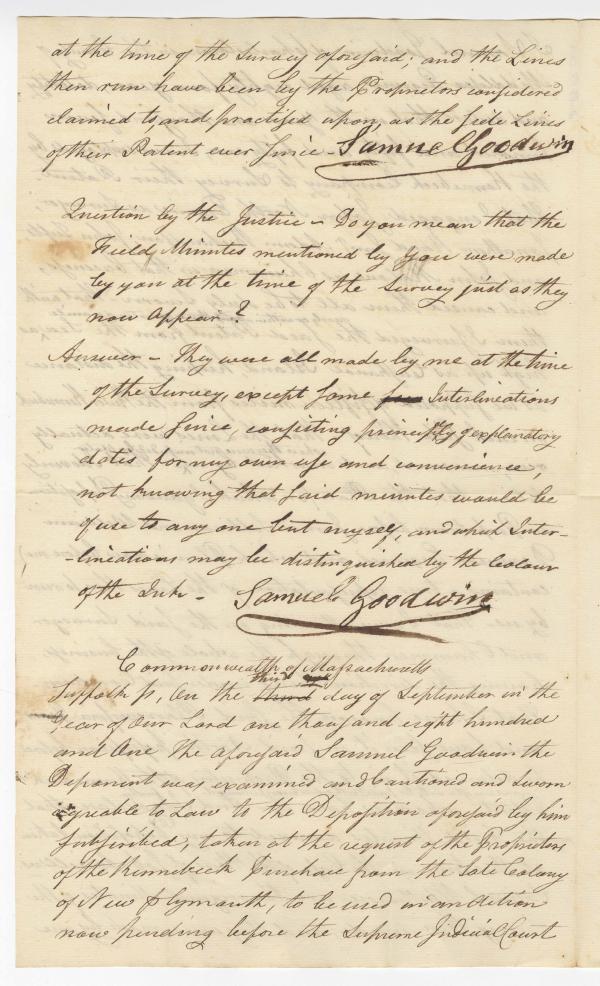 at the time of the Survey aforesaid; and the Lines
then run have been by the Proprietors considered
claimed to, and practised upon, as the side Lines
of their Patent ever since - Samuel Goodwin
Question by the Justice - Do you mean that the
Field Minutes mentioned by You were made
by you at the time of the Survey just as they
now appear?
Answer - They were all made by me at the time
of the Survey, except some Interlineations
made since, consisting principly of explanatory
dates for my own use and convenience,
not knowing that said minutes would be
of use to any one but myself, and which Inter-
-lineations may be distinguished by the Colour
of the Ink - Samuel Goodwin
Commonwealth of Massachusetts
third
Suffolk ss, On the third day of September in the
Year of Our Lord one thousand eight hundred
and One the aforesaid Samuel Goodwin the
Deponent was examined and Cautioned and Sworn
agreable to Law to the Deposition aforesaid by him
subscribed, taken at the request of the Proprietors
of the Kennebeck Purchase from the late Colony
of New Plymouth, to be used in an Action
now pending before the Supreme Judicial Court